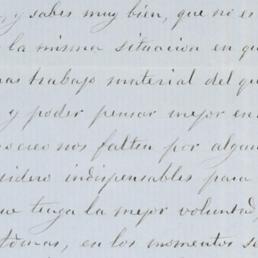 y sabes muy bien, que no es
la misma situacion en qu
mas trabajo material del qu
y poder pensar mejor en
creo nos falten por algun
sidero indispensables para
ue tenga la mejor voluntad,
tomas, en los momentos se